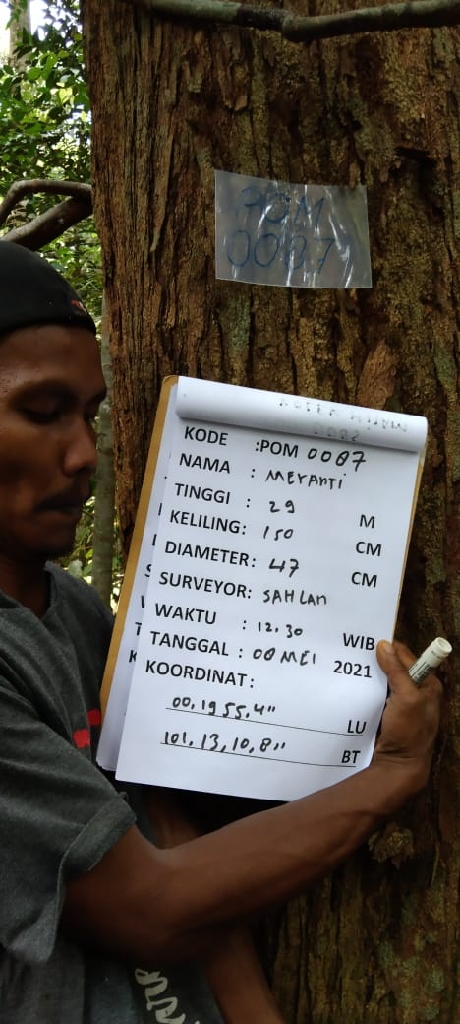 POM
0087
KODE :POM 0087
NAMA : MERANTI
TINGGI : 29 M
KELILING: 150 CM
DIAMETER: 47 CM
SURVEYOR: SAHLAN
WAKTU : 12.30 WIB
TANGGAL : 08 MEI 2021
KOORDINAT:
00.19 55.4" LU
101.13,10,8" BT